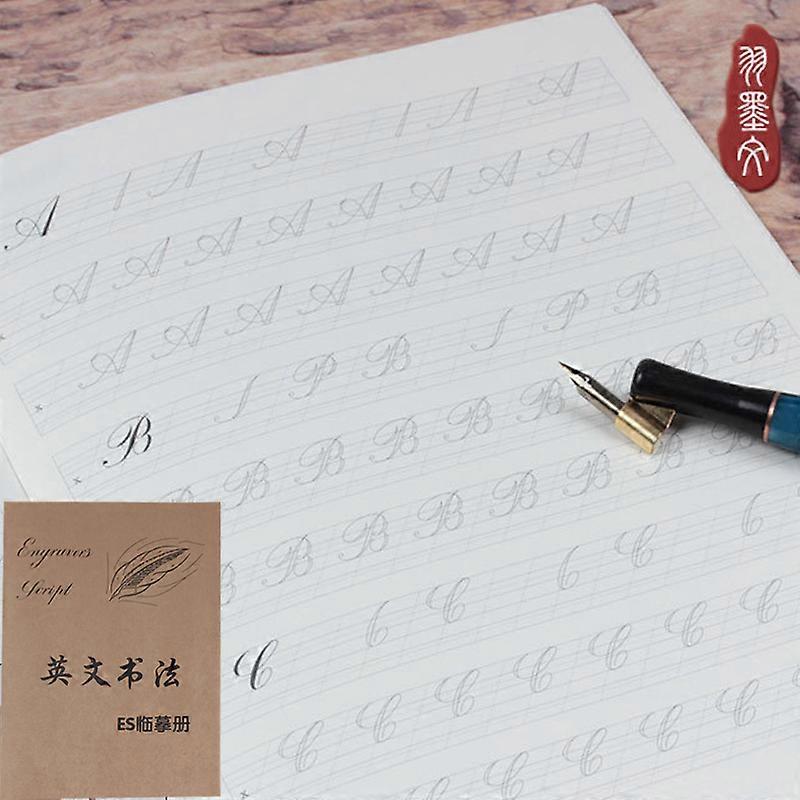 羽墨文
A l A A l A A
A A A A A A A A
A A A A A A A A
B P B P B
B B B B B B B B
B B B B B B
C C C
C C C C C C C
C C C C C
Engravers
Script
英文书法
ES临摹册